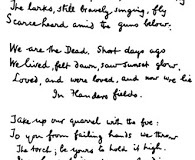 The larks, still bravely singing, fly
Scarce heard amid the guns below.
We are the Dead. Short days ago
We lived, felt dawn, saw sunset glow,
Loved, and were loved, and now we lie
In Flanders fields.
Take up our quarrel with the foe:
To you from failing hands we throw
The torch; be yours to hold it high.